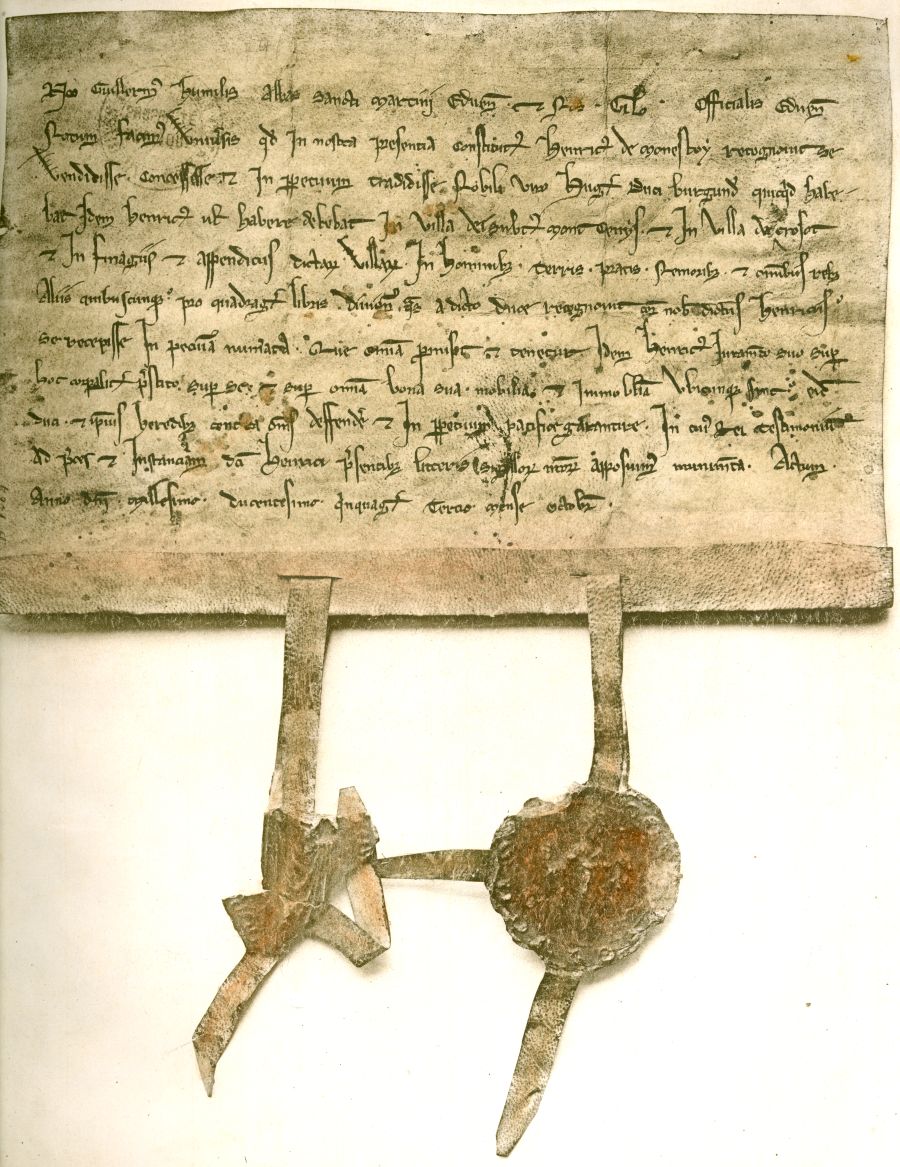 Nos Guillermꝰ humilis Abbas Sancti Martini Eduen̄ . et Nos . Gil̄ . Officialis Eduen̄
Notum facimꝰ Vniuersis qd In nostra presentia Constitutꝰ Henricꝰ de Monestoy recognouit se
Vendidisse . Concessisse . et In ꝑpetuum tradidisse . Nobili Viro Hug̃ Duci burgund̃ quicq̃d habe-
bat Idem henricꝰ ul̃ habere debebat In Villa de subtꝰ Mont Cenys . et In Villa de Crosot
et In finagiis et appendiciis dictar̃ Villar̃ In hominibꝫ . terris . pratis . Nemoribꝫ . et omibus rebꝫ
Aliis quibuscunqꝫ . pro quadragĩ libris . diuion̄ . q̃s a dicto duce recognouit cor̃ nob̃ dictus henricus
se recepisse In pecũia numerata . Que om̃ia promisit et tenetur Idem henricꝰ Iuram̃to suo super
hoc corꝑalit̃ p̃stito super se . et super om̃ia bona sua . mobilia . et Immobilia Vbicunqꝫ sint . eid̃
duci . et ip̃ius heredibꝫ contra om̃s deffendere et In ꝑpetuum pacifice garantire . In cuiꝰ Rei testimonium
Ad p̃ces et Instanciam dc̃i henrici p̃sentibꝫ litteris sigillor̃ nr̃or̃ apposuimꝰ munim̃ta . Actum .
Anno dñi Millesimo . ducentesimo . q̃nquagꝰ Tercio Mense octobr̃ .